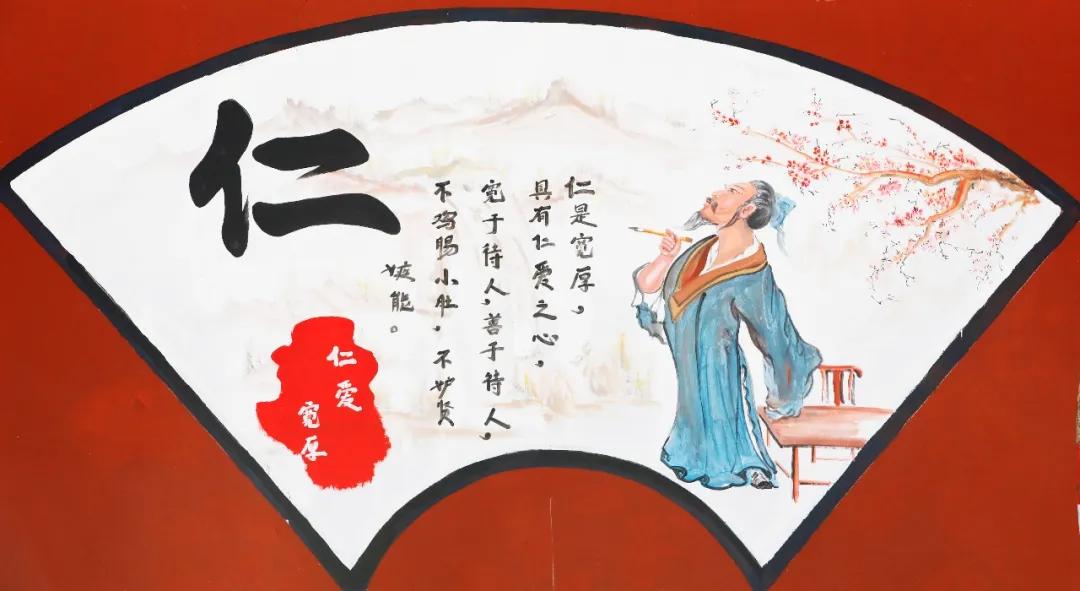 仁
仁是宽厚，
具有仁爱之心，
宽于待人，善于待人，
不鸡腸小肚，不妒贤
嫉能。
仁爱
宽厚